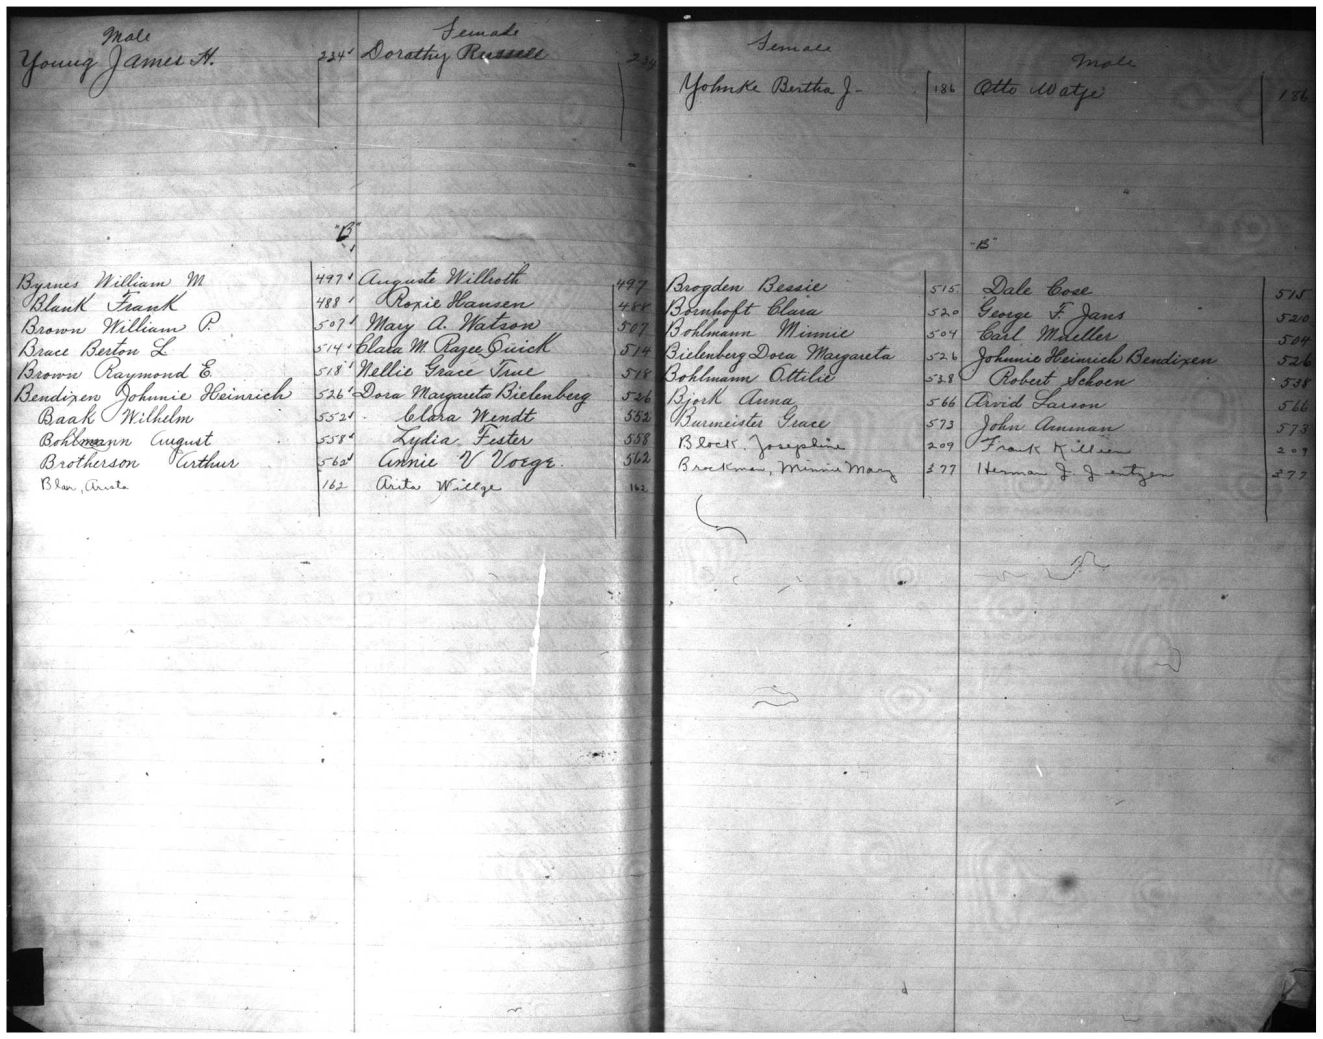 Male Female
Young James H. 234 Dorathy Russell 234
"B"
Byrnes William M 497 Auguste Willroth 497
Blunk Frank 488 Roxie Hansen 488
Brown William P. 507 Mary A. Watson 507
Brace Berton L 514 Clara M Razee Quick 514
Brown Raymond E 518 Nellie Grace True 518
Bendixen Johnnie Heinrich 526 Dora Margareta Bielenberg 526
Baak Wilhelm 552 Clara Wendt 552
Bohlmann August 558 Lydia Fester 558
Brotherson Arthur 562 Annie V Voege. 562
162 Arita Willge 162
Female Male
Yohnke Bertha J- 186 Otto Watje 186
"B"
Brogden Bessie 515 Dale Cose 515
Bornhoft Clara 520 George F. Jans 520
Bohlmann Minnie 504 Carl Mueller 504
Bielenberg Dora Margareta 526 Johnnie Heinrich Bendixen 526
Bohlmann Ottilie 538 Robert Schoen 538
Bjork Anna 566 Arvid Larson 566
Burmeister Grace 573 John Amman 573
Block, Josephine 209 Frank Killien 209
Brockman, Minnie Mary 377 Herman J. Jentzen 377